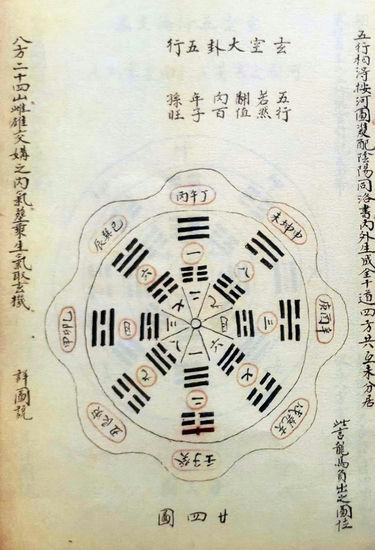 五行相得按河圖裝配陰陽同洛書內外生成合十道四方共互來分居
此言龍馬負出之圖位
玄空大卦五行
五行
若然
翻值
向百
年子
孫旺
丙午丁
未坤申
庚酉辛
戌乾亥
壬子癸
丑艮寅
甲卯乙
辰巽巳
一
八
三
二
九
四
六
廿四圖
八方二十四山雌雄交媾之內氣乘生氣取玄機
詳圖說